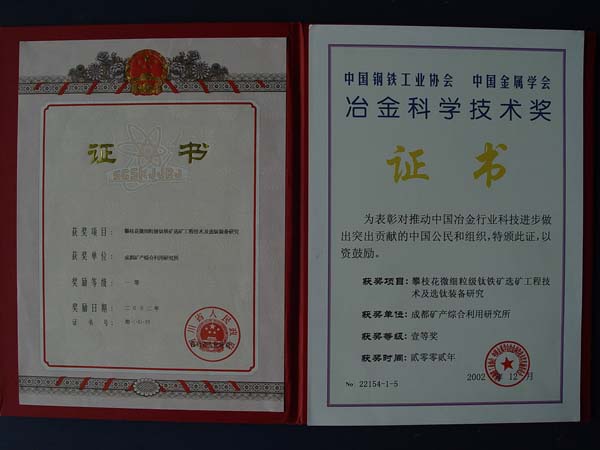 证 书
SCSKJJBJ
获奖项目： 攀枝花微细粒级钛铁矿选矿工程技术及选钛装备研究
获奖单位： 成都矿产综合利用研究所
奖励等级： 一等
奖励日期： 二〇〇二年
证 书 号：
四川省人民政府
中国钢铁工业协会 中国金属学会
冶金科学技术奖
证 书
为表彰对推动中国冶金行业科技进步做
出突出贡献的中国公民和组织，特颁此证，以
资鼓励。
获奖项目：攀枝花微细粒级钛铁矿选矿工程技
术及选钛装备研究
获奖单位：成都矿产综合利用研究所
获奖等级：壹等奖
获奖时间：贰零零贰年
No 22154-1-5
2002 年 12 月